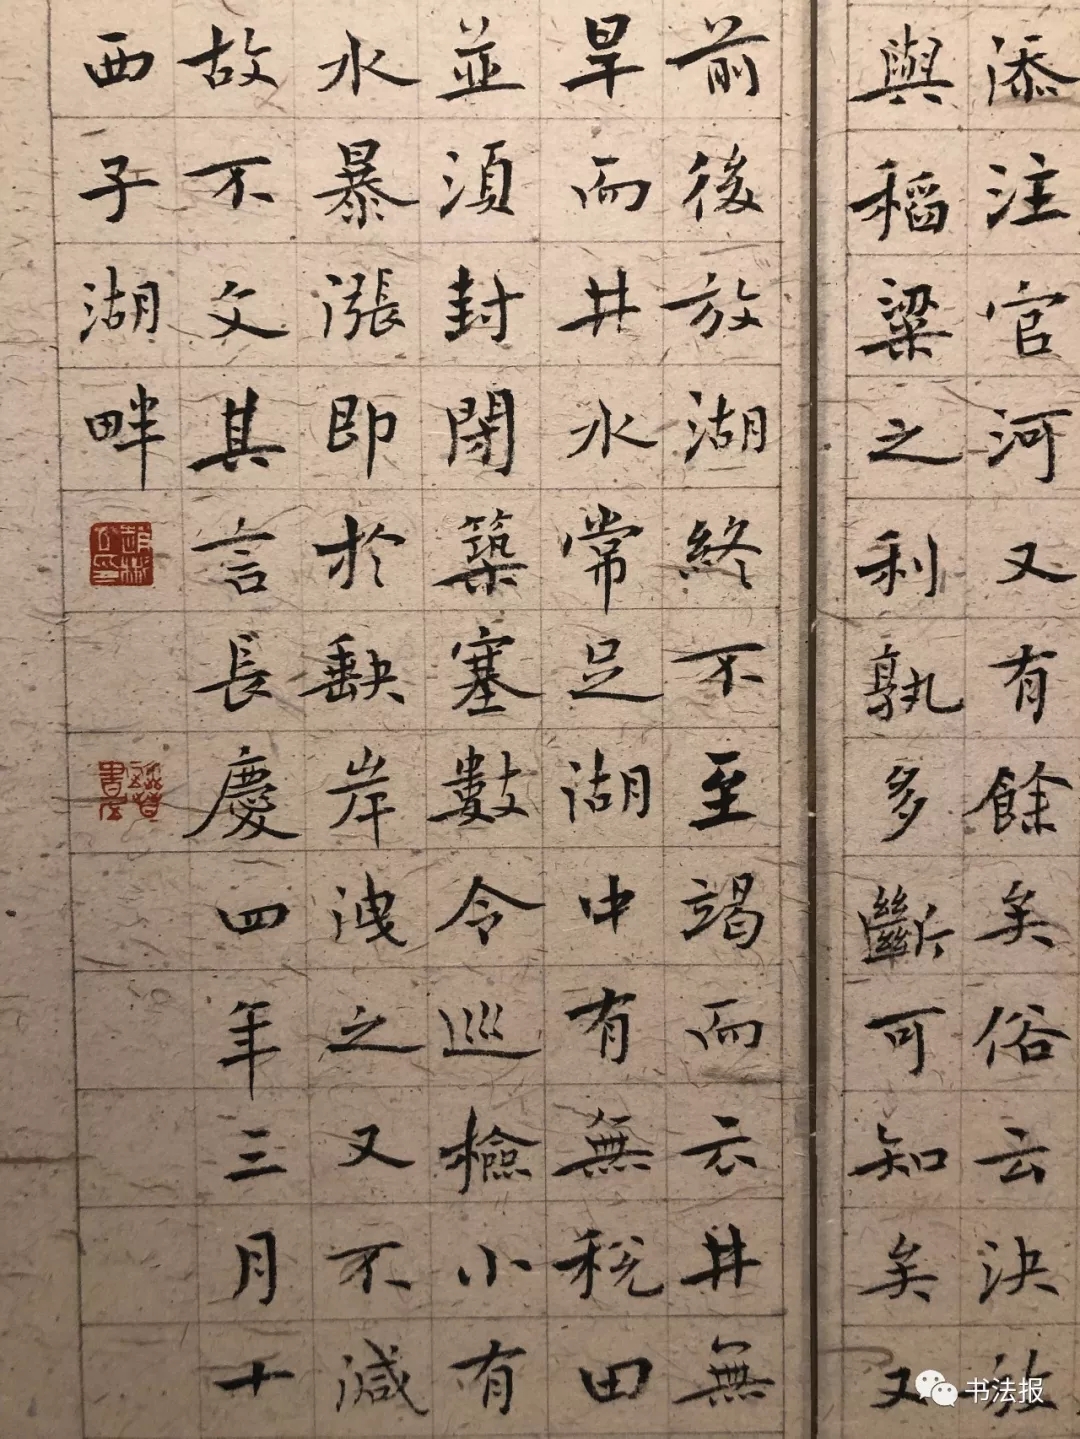 添注官河又有餘矣俗云決放
與稻粱之利孰多斷可知矣又
前後放湖終不至竭而云井無
旱而井水常足湖中有無稅田
並須封閉築塞數令巡檢小有
水暴漲即於缺岸洩之又不減
故不文其言長慶四年三月十
西子湖畔
书法报